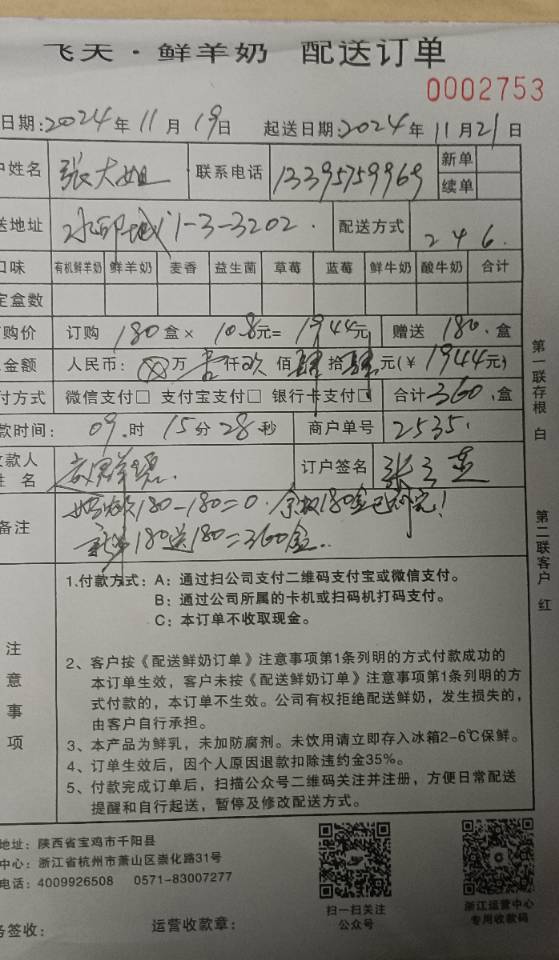 飞天·鲜羊奶 配送订单
0002753
日期:2024年11月19日 起送日期:2024年11月21日
户姓名 张大姐 联系电话 13395759969 新单
续单
送地址 水印城1-3-3202. 配送方式 246.
口味 有机鲜羊奶 鲜羊奶 麦香 益生菌 草莓 蓝莓 鲜牛奶 酸牛奶 合计
定盒数
购价 订购180盒×10.8元=1944元 赠送180.盒
金额 人民币:⊗万壹仟玖佰肆拾肆元(¥1944元)
付方式 微信支付□ 支付宝支付□ 银行卡支付□ 合计360.盒
款时间: 09.时15分28秒 商户单号 2535.
收款人
姓名 订户签名
备注 180-180=0.余奶180盒已补完!
180送180=360盒..
注意事项
1.付款方式:A:通过扫公司支付二维码支付宝或微信支付。
B:通过公司所属的卡机或扫码机打码支付。
C:本订单不收取现金。
2、客户按《配送鲜奶订单》注意事项第1条列明的方式付款成功的
本订单生效,客户未按《配送鲜奶订单》注意事项第1条列明的方
式付款的,本订单不生效。公司有权拒绝配送鲜奶,发生损失的,
由客户自行承担。
3、本产品为鲜乳,未加防腐剂。未饮用请立即存入冰箱2-6℃保鲜。
4、订单生效后,因个人原因退款扣除违约金35%。
5、付款完成订单后,扫描公众号二维码关注并注册,方便日常配送
提醒和自行起送,暂停及修改配送方式。
第一联存根 白
第二联客户 红
地址:陕西省宝鸡市千阳县
中心:浙江省杭州市萧山区崇化路31号
电话:4009926508 0571-83007277
扫一扫关注
公众号
浙江运营中心
专用收款码
务签收: 运营收款章: